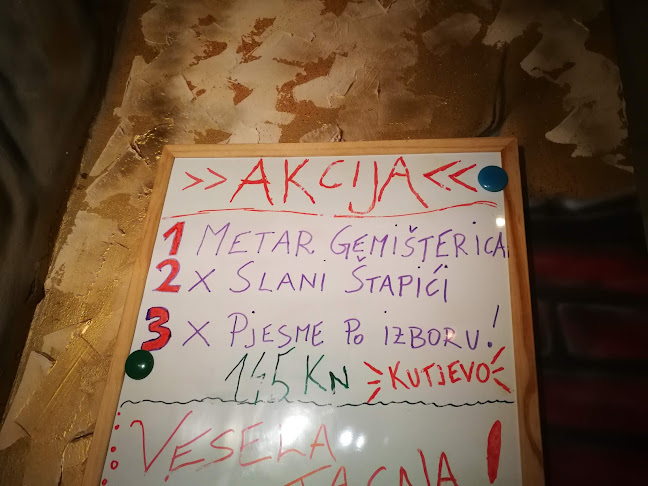 >> AKCIJA <<
1 METAR GEMIŠTERICA
2 X SLANI ŠTAPIĆI
3 X PJESME PO IZBORU!
145 KN KUTJEVO
VESELA !
TACNA